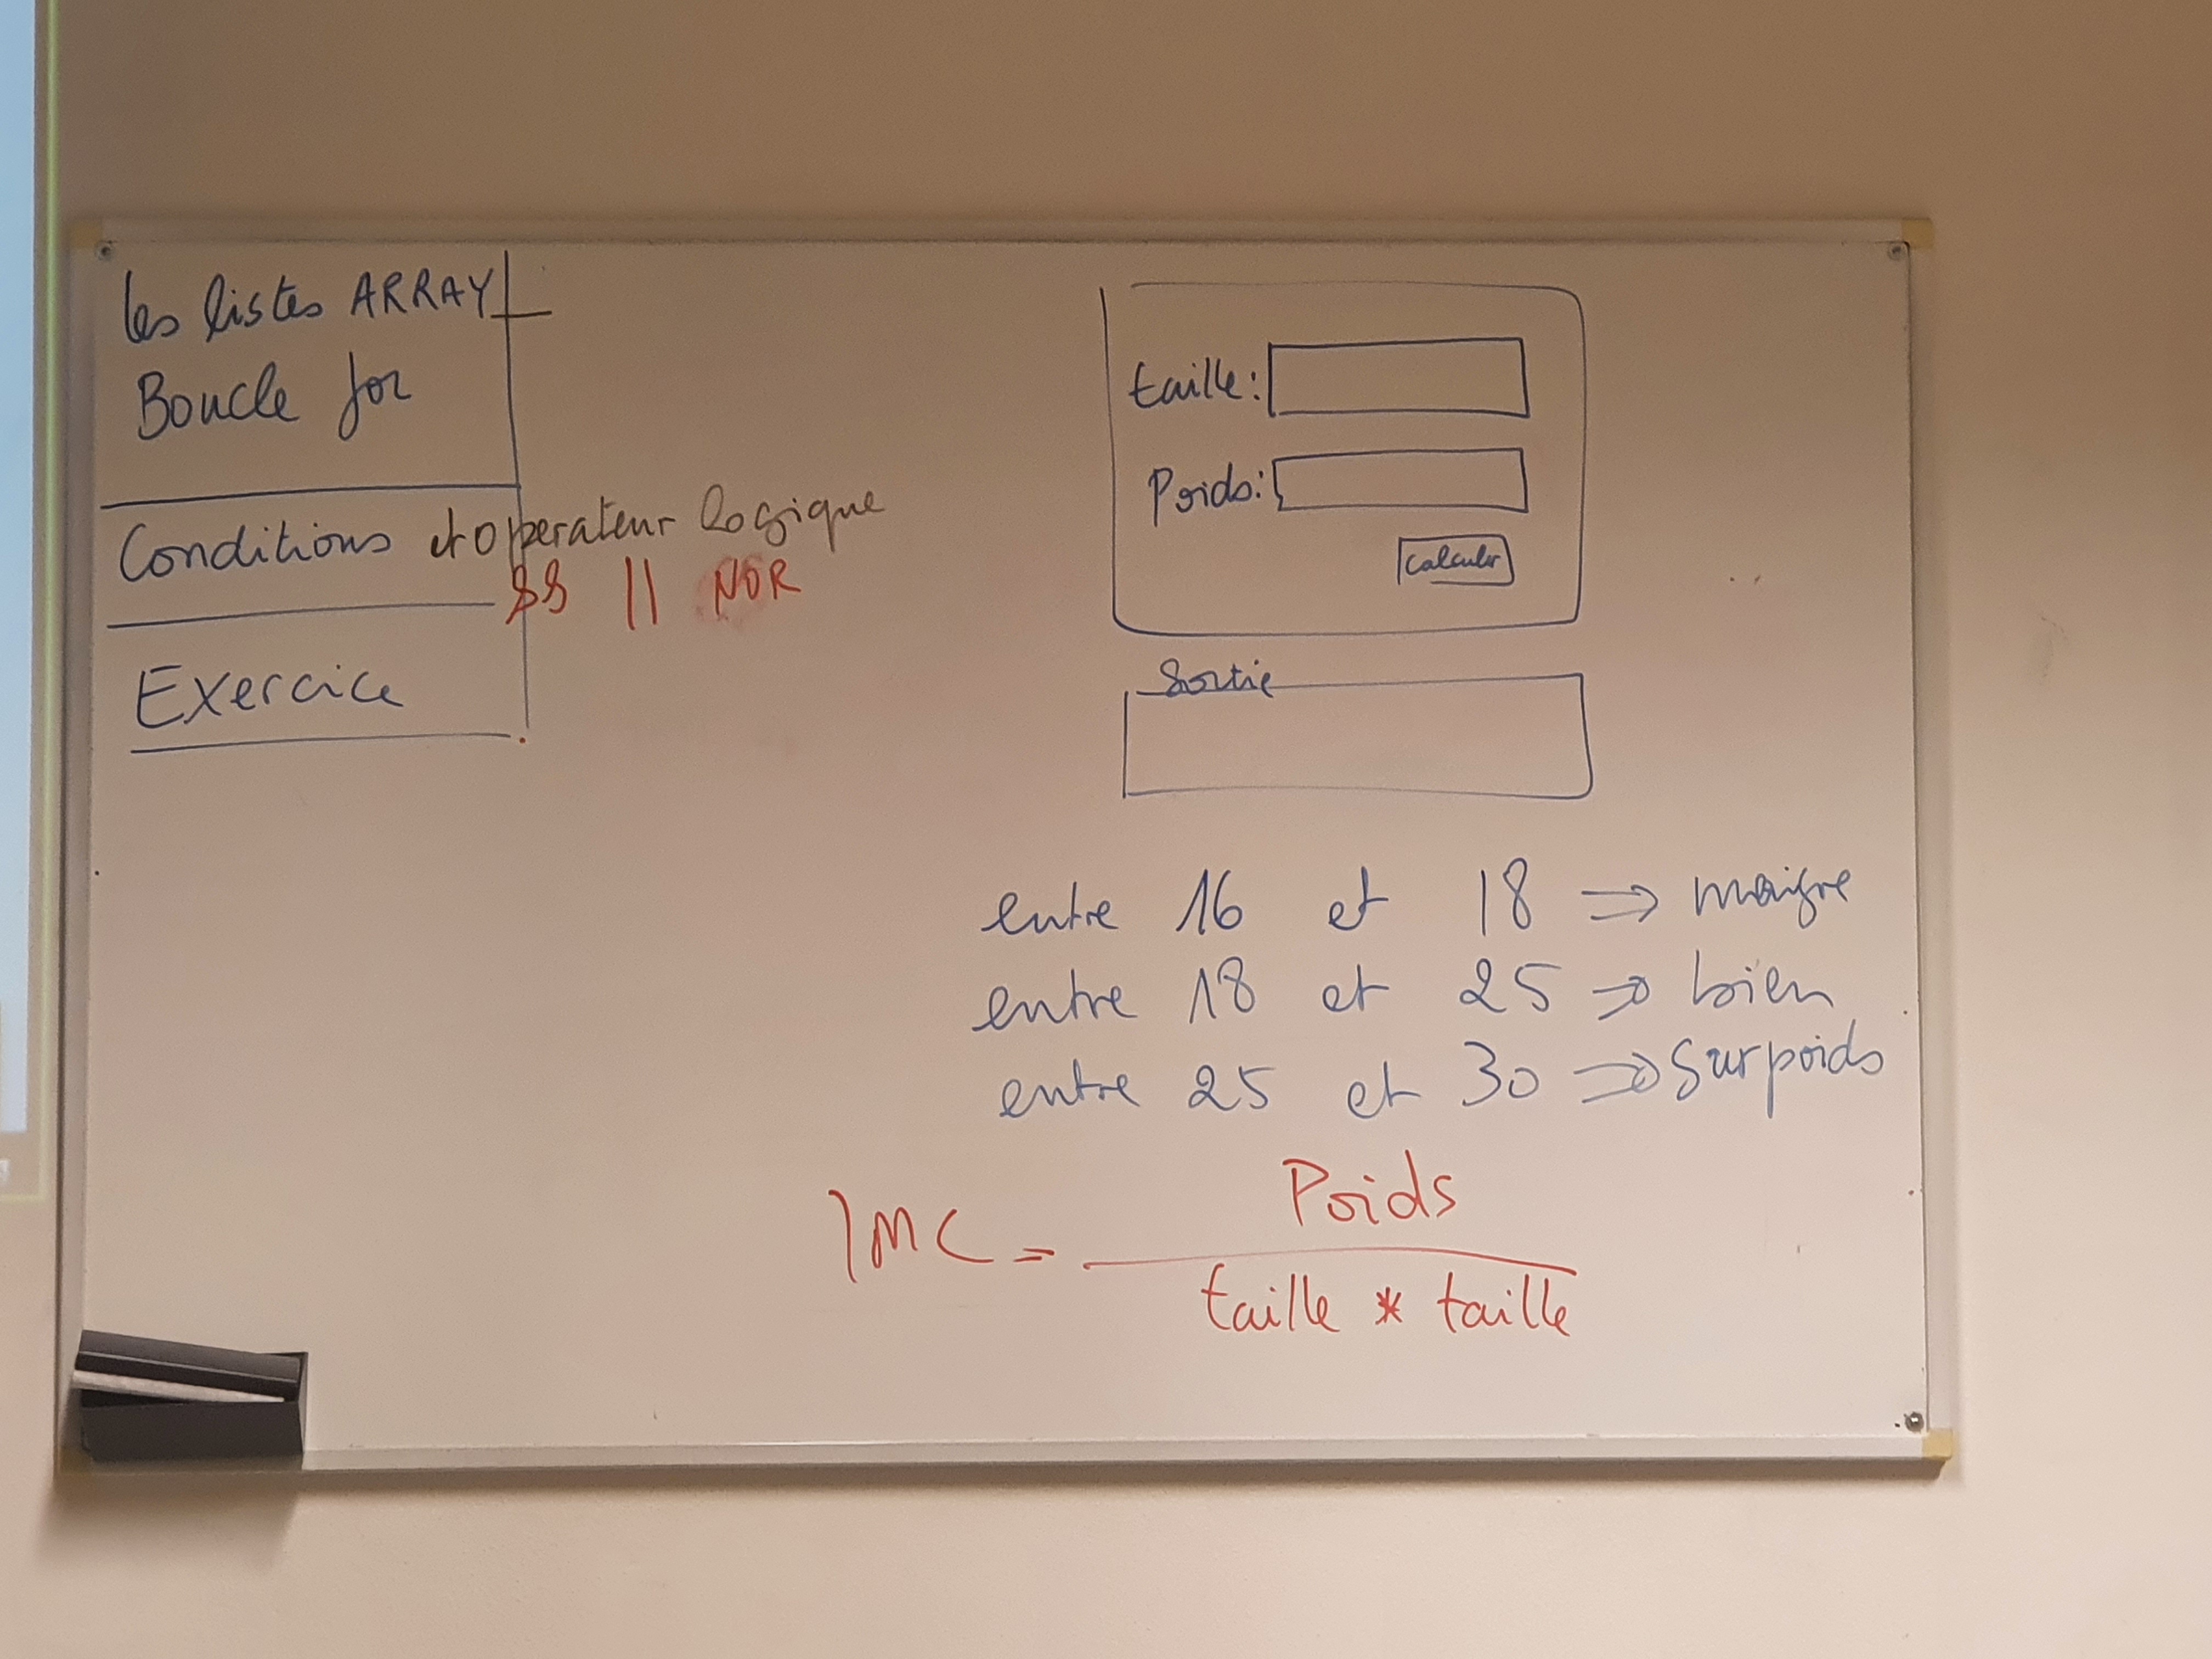 les listes ARRAY
Boucle for
Conditions et operateur logique
&& || NOR
Exercice
taille:
Poids:
Calculer
Sortie
entre 16 et 18 => maigre
entre 18 et 25 => bien
entre 25 et 30 => Surpoids
IMC = Poids
taille * taille